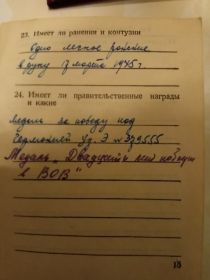 23. Имеет ли ранения и контузии
одно легкое ранение
в руку 7 марта 1945 г
24. Имеет ли правительственные награды
и какие
Медаль за победу над
Германией уд. Э №379555
Медаль „Двадцать лет победы
в ВОВ"
15